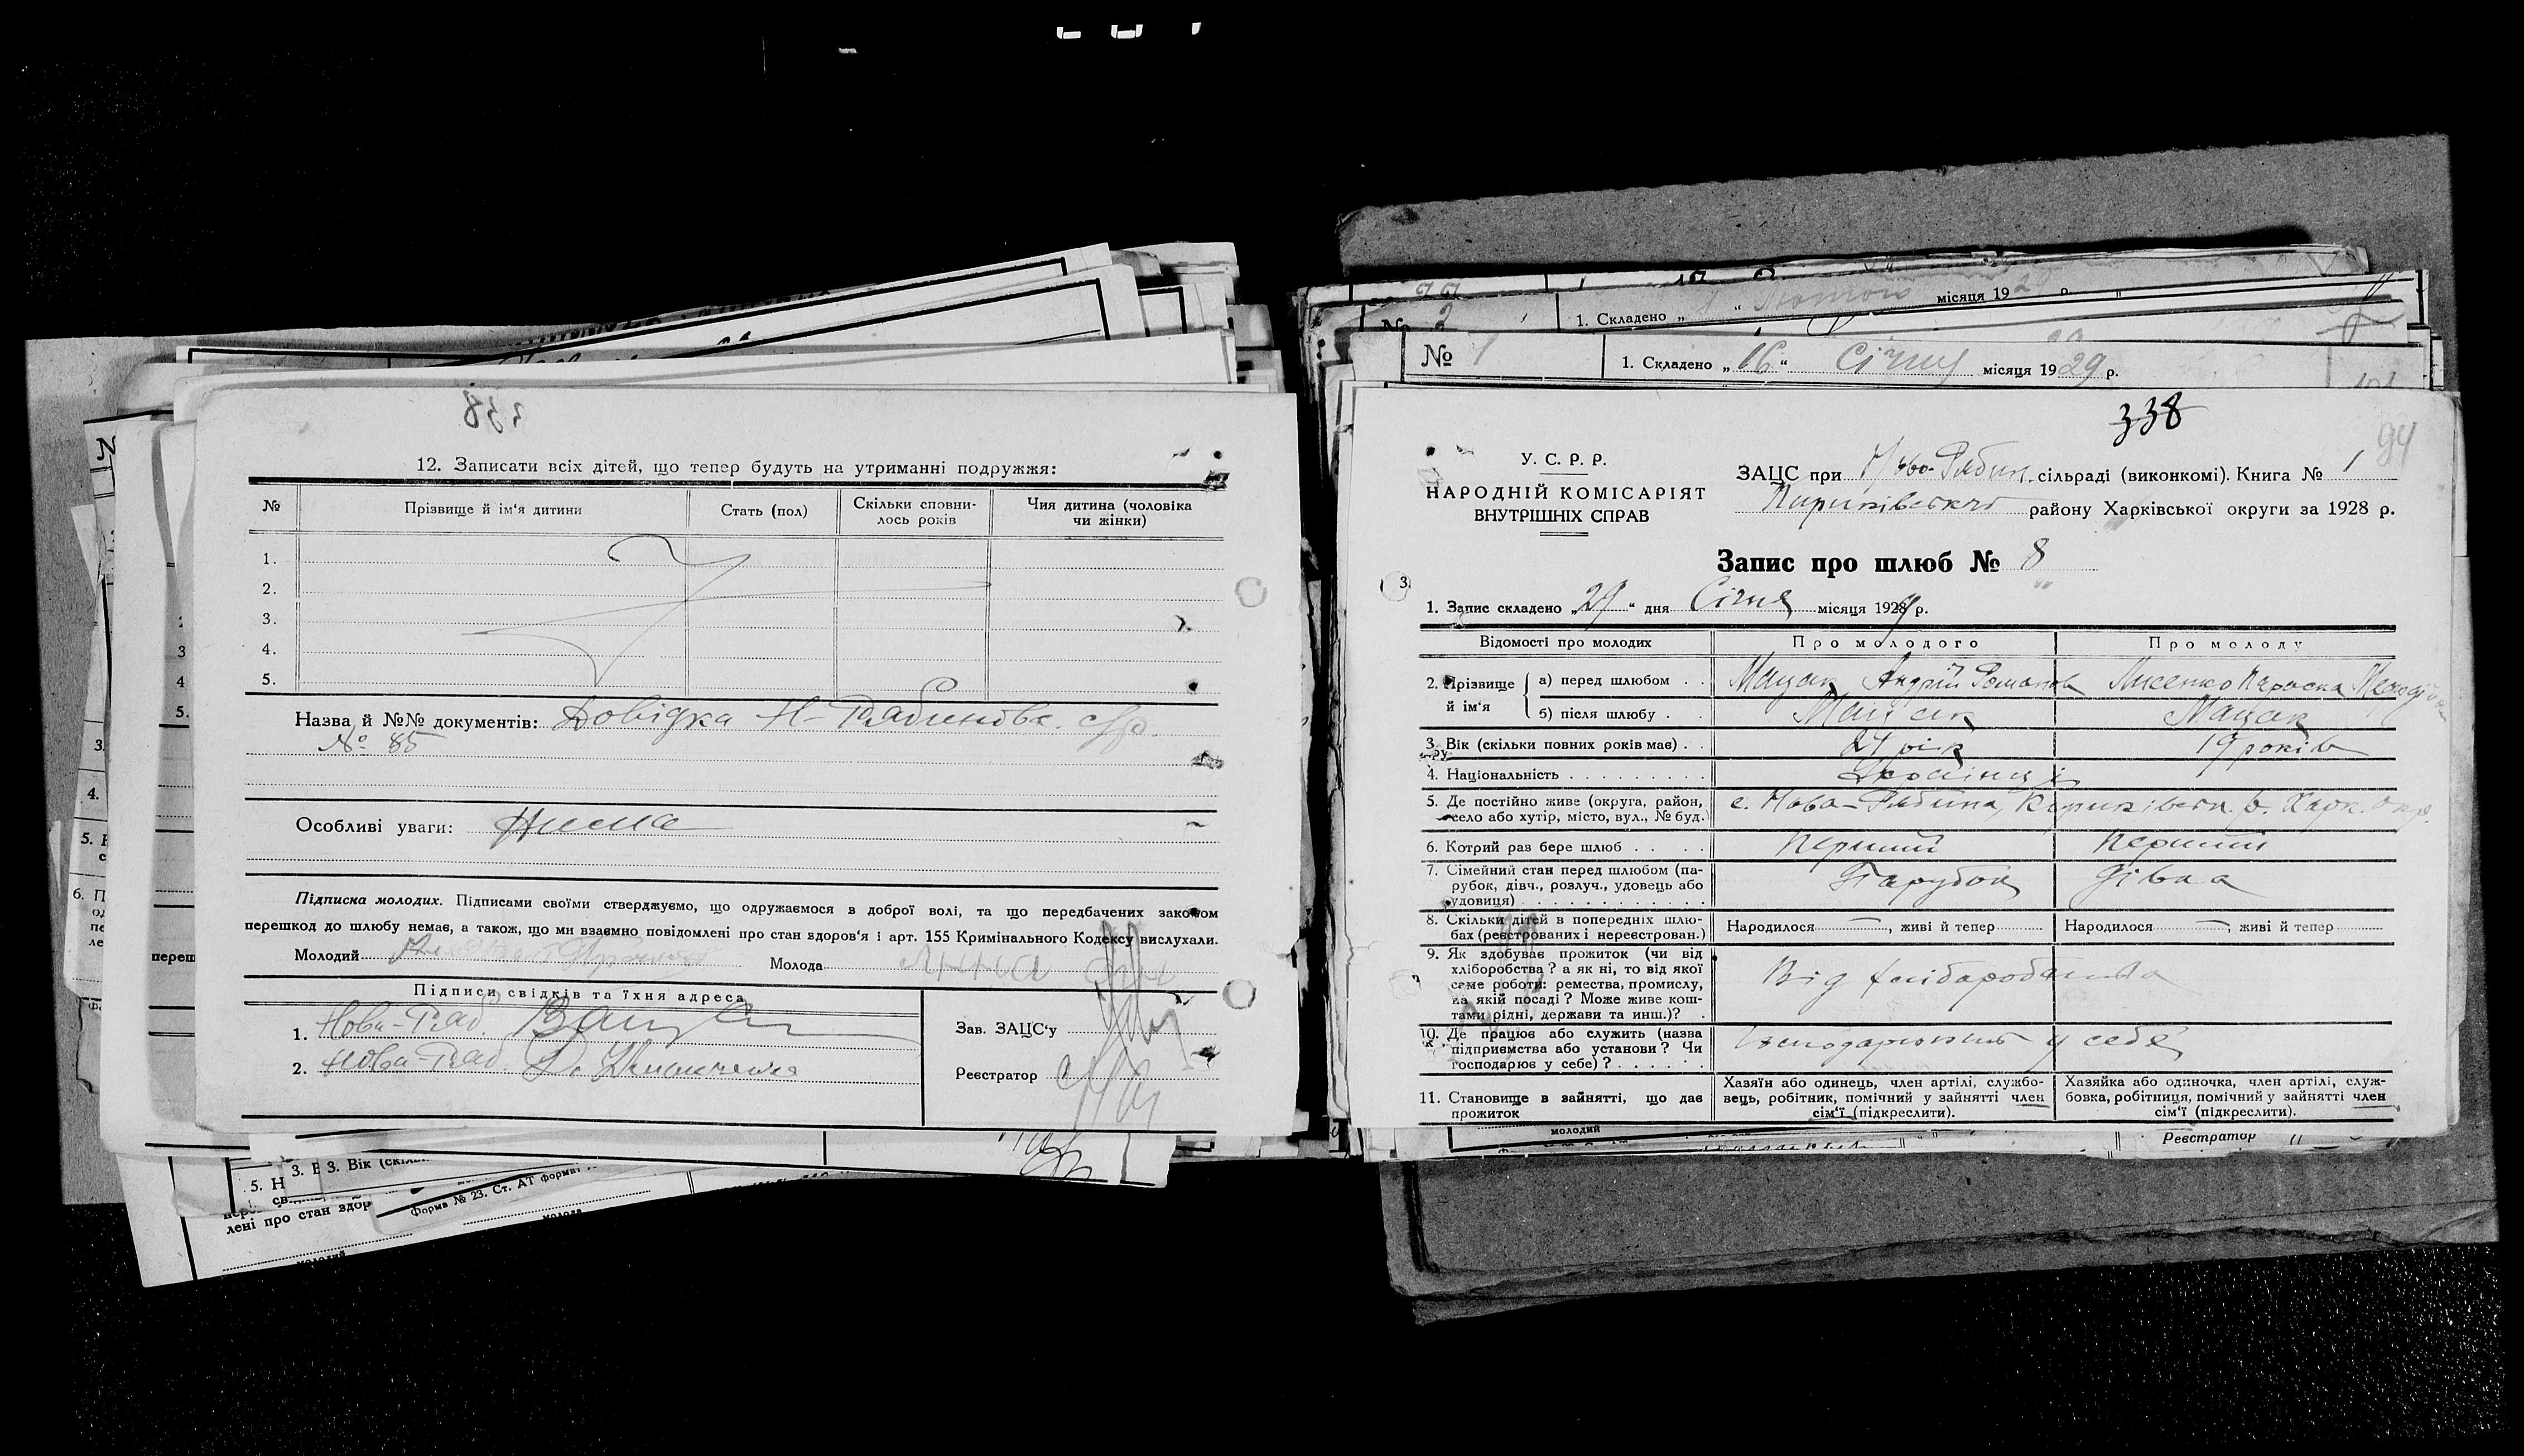 338
12. Записати всіх дітей, що тепер будуть на утриманні подружжя:
№ Прізвище й ім'я дитини Стать (пол) Скільки сповни-лось років Чия дитина (чоловіка чи жінки)
1.
2.
3.
4.
5.
Назва й №№ документів: Довідка Н-Рябиновск. с/р.
№ 85
Особливі уваги: Нема
Підписка молодих. Підписами своїми стверджуємо, що одружаємося з доброї волі, та що передбачених законом
перешкод до шлюбу немає, а також, що ми взаємно повідомлені про стан здоров'я і арт. 155 Кримінального Кодексу вислухали.
Молодий
Молода
Підписи свідків та їхня адреса
1. Нова-Ряб.
2. Нова-Ряб.
Зав. ЗАЦС'у
Реєстратор
№ 2 1. Складено „ “ Лютого місяця 1929 р.
№ 1 1. Складено „16“ Січня місяця 1929 р.
338
94
У. С. Р. Р.
НАРОДНІЙ КОМІСАРІЯТ
ВНУТРІШНІХ СПРАВ
ЗАЦС при Ново-Рябин. сільраді (виконкомі). Книга № 1
Кириківського району Харківської округи за 1928 р.
Запис про шлюб № 8
1. Запис складено „29“ дня Січня місяця 1929 р.
Відомості про молодих Про молодого Про молоду
2. Прізвище й ім'я а) перед шлюбом . . Мацак Андрій Романов Лисенко Параска
б) після шлюбу . . Мацак Мацак
3. Вік (скільки повних років має) . . 21 рік 19 років
4. Національність . . . . . . . . . Українці
5. Де постійно живе (округа, район, село або хутір, місто, вул., № буд.) с. Нова-Рябина, Кириківськ. р. Харк. окр.
6. Котрий раз бере шлюб . . . . . Перший Перший
7. Сімейний стан перед шлюбом (па-рубок, дівч., розлуч., удовець або удовиця) . . . . . . . . . . . . Парубок Дівка
8. Скільки дітей в попередніх шлю-бах (реєстрованих і нереєстрован.) Народилося —, живі й тепер Народилося —, живі й тепер
9. Як здобуває прожиток (чи від хліборобства? а як ні, то від якої саме роботи: ремества, промислу, на якій посаді? Може живе кош-тами рідні, держави та инш.)? . Від хліборобства
10. Де працює або служить (назва підприємства або установи? Чи господарює у себе)? . . . . . . Господарюють у себе
11. Становище в зайнятті, що дає прожиток Хазяїн або одинець, член артілі, службо-вець, робітник, помічний у зайнятті член сім'ї (підкреслити). Хазяйка або одиночка, член артілі, служ-бовка, робітниця, помічний у зайнятті член сім'ї (підкреслити).
молодий
Реєстратор
Форма № 23. Ст. АТ формат
лені про стан здор
молода
молодий